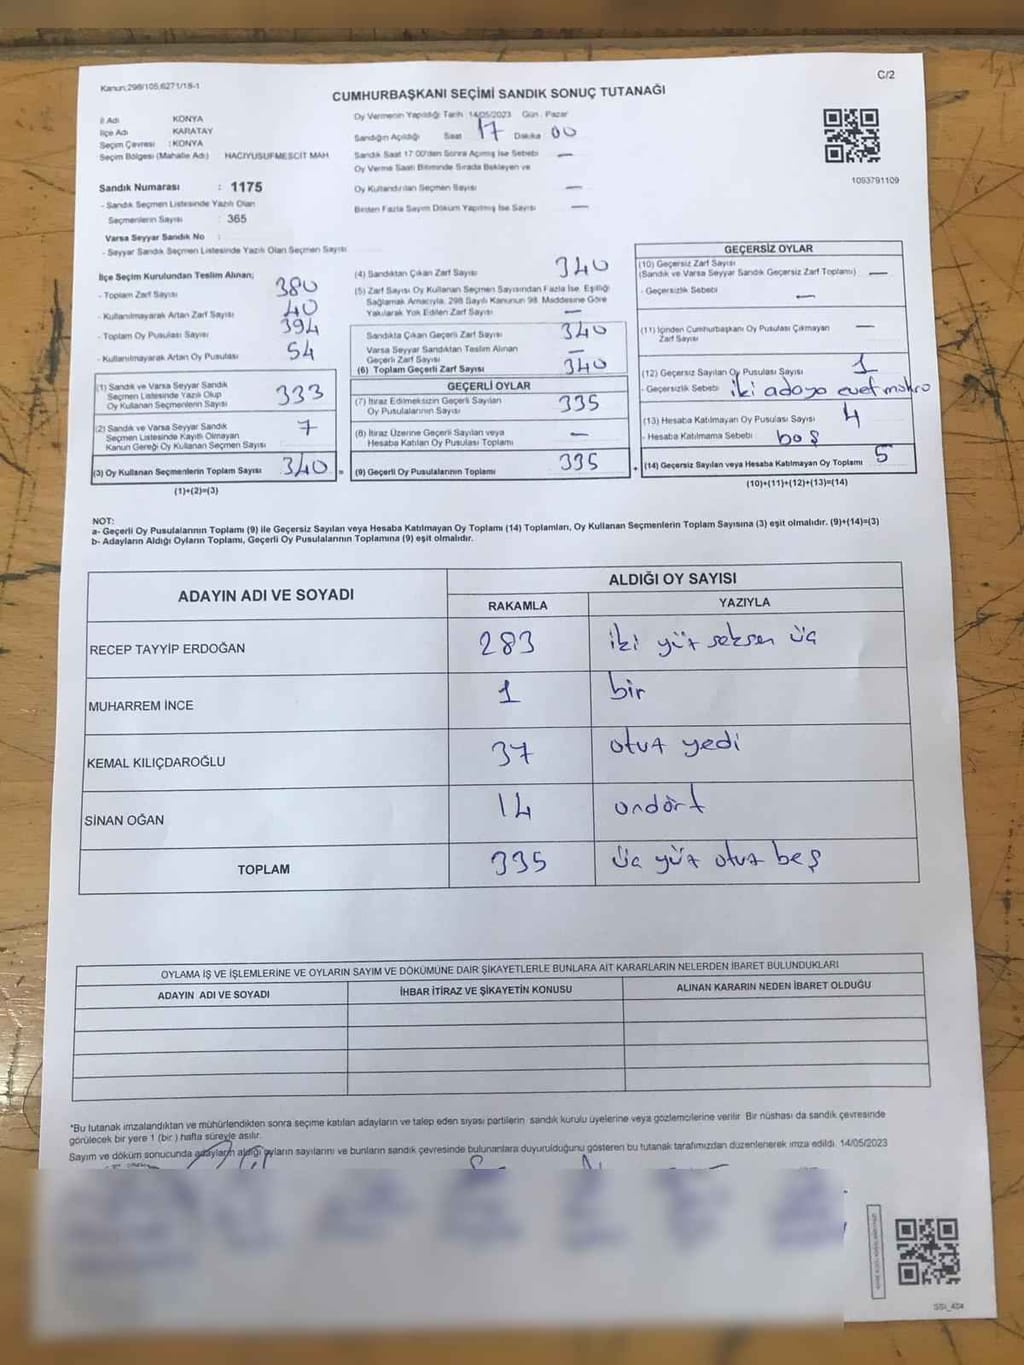 Kanun;298/105,6271/18-1
C/2
CUMHURBAŞKANI SEÇİMİ SANDIK SONUÇ TUTANAĞI
İl Adı KONYA
İlçe Adı KARATAY
Seçim Çevresi : KONYA
Seçim Bölgesi (Mahalle Adı) : HACIYUSUFMESCİT MAH
Sandık Numarası : 1175
- Sandık Seçmen Listesinde Yazılı Olan
Seçmenlerin Sayısı : 365
Varsa Seyyar Sandık No :
- Seyyar Sandık Seçmen Listesinde Yazılı Olan Seçmen Sayısı
Oy Vermenin Yapıldığı Tarih 14/05/2023 Gün . Pazar
Sandığın Açıldığı Saat 17 Dakika 00
Sandık Saat 17:00'den Sonra Açılmış İse Sebebi —
Oy Verme Saati Bitiminde Sırada Bekleyen ve
Oy Kullandırılan Seçmen Sayısı —
Birden Fazla Sayım Döküm Yapılmış İse Sayısı —
1093791109
İlçe Seçim Kurulundan Teslim Alınan;
- Toplam Zarf Sayısı 380
- Kullanılmayarak Artan Zarf Sayısı 40
- Toplam Oy Pusulası Sayısı 394
- Kullanılmayarak Artan Oy Pusulası 54
(1) Sandık ve Varsa Seyyar Sandık
Seçmen Listesinde Yazılı Olup
Oy Kullanan Seçmenlerin Sayısı 333
(2) Sandık ve Varsa Seyyar Sandık
Seçmen Listesinde Kayıtlı Olmayan
Kanun Gereği Oy Kullanan Seçmen Sayısı 7
(3) Oy Kullanan Seçmenlerin Toplam Sayısı 340 =
(1)+(2)=(3)
(4) Sandıktan Çıkan Zarf Sayısı 340
(5) Zarf Sayısı Oy Kullanan Seçmen Sayısından Fazla İse, Eşitliği
Sağlamak Amacıyla, 298 Sayılı Kanunun 98. Maddesine Göre
Yakılarak Yok Edilen Zarf Sayısı —
Sandıkta Çıkan Geçerli Zarf Sayısı 340
Varsa Seyyar Sandıktan Teslim Alınan
Geçerli Zarf Sayısı —
(6) Toplam Geçerli Zarf Sayısı 340
GEÇERLİ OYLAR
(7) İtiraz Edilmeksizin Geçerli Sayılan
Oy Pusulalarının Sayısı 335
(8) İtiraz Üzerine Geçerli Sayılan veya
Hesaba Katılan Oy Pusulası Toplamı —
(9) Geçerli Oy Pusulalarının Toplamı 335 +
GEÇERSİZ OYLAR
(10) Geçersiz Zarf Sayısı
(Sandık ve Varsa Seyyar Sandık Geçersiz Zarf Toplamı) —
- Geçersizlik Sebebi —
(11) İçinden Cumhurbaşkanı Oy Pusulası Çıkmayan
Zarf Sayısı —
(12) Geçersiz Sayılan Oy Pusulası Sayısı 1
- Geçersizlik Sebebi iki adaya evet
(13) Hesaba Katılmayan Oy Pusulası Sayısı 4
- Hesaba Katılmama Sebebi boş
(14) Geçersiz Sayılan veya Hesaba Katılmayan Oy Toplamı 5
(10)+(11)+(12)+(13)=(14)
NOT:
a- Geçerli Oy Pusulalarının Toplamı (9) ile Geçersiz Sayılan veya Hesaba Katılmayan Oy Toplamı (14) Toplamları, Oy Kullanan Seçmenlerin Toplam Sayısına (3) eşit olmalıdır. (9)+(14)=(3)
b- Adayların Aldığı Oyların Toplamı, Geçerli Oy Pusulalarının Toplamına (9) eşit olmalıdır.
ADAYIN ADI VE SOYADI ALDIĞI OY SAYISI
RAKAMLA YAZIYLA
RECEP TAYYİP ERDOĞAN 283 iki yüz seksen üç
MUHARREM İNCE 1 bir
KEMAL KILIÇDAROĞLU 37 otuz yedi
SİNAN OĞAN 14 ondört
TOPLAM 335 üç yüz otuz beş
OYLAMA İŞ VE İŞLEMLERİNE VE OYLARIN SAYIM VE DÖKÜMÜNE DAİR ŞİKAYETLERLE BUNLARA AİT KARARLARIN NELERDEN İBARET BULUNDUKLARI
ADAYIN ADI VE SOYADI İHBAR İTİRAZ VE ŞİKAYETİN KONUSU ALINAN KARARIN NEDEN İBARET OLDUĞU
*Bu tutanak imzalandıktan ve mühürlendikten sonra seçime katılan adayların ve talep eden siyasi partilerin sandık kurulu üyelerine veya gözlemcilerine verilir. Bir nüshası da sandık çevresinde
görülecek bir yere 1 (bir ) hafta süreyle asılır.
Sayım ve döküm sonucunda adayların aldığı oyların sayılarını ve bunların sandık çevresinde bulunanlara duyurulduğunu gösteren bu tutanak tarafımızdan düzenlenerek imza edildi. 14/05/2023